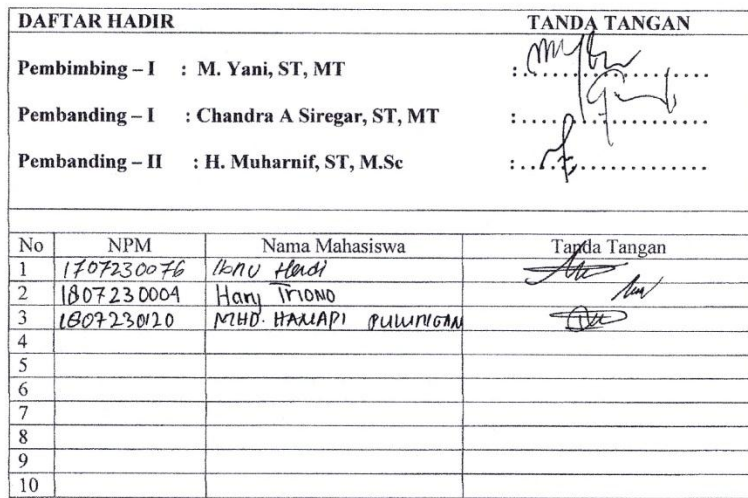 DAFTAR HADIR TANDA TANGAN
Pembimbing – I : M. Yani, ST, MT : ....................
Pembanding – I : Chandra A Siregar, ST, MT : ....................
Pembanding – II : H. Muharnif, ST, M.Sc : ....................
No NPM Nama Mahasiswa Tanda Tangan
1 1707230076 Ibnu Hendi
2 1807230004 Hary Triono
3 1807230120 MHD. HANAPI
4
5
6
7
8
9
10